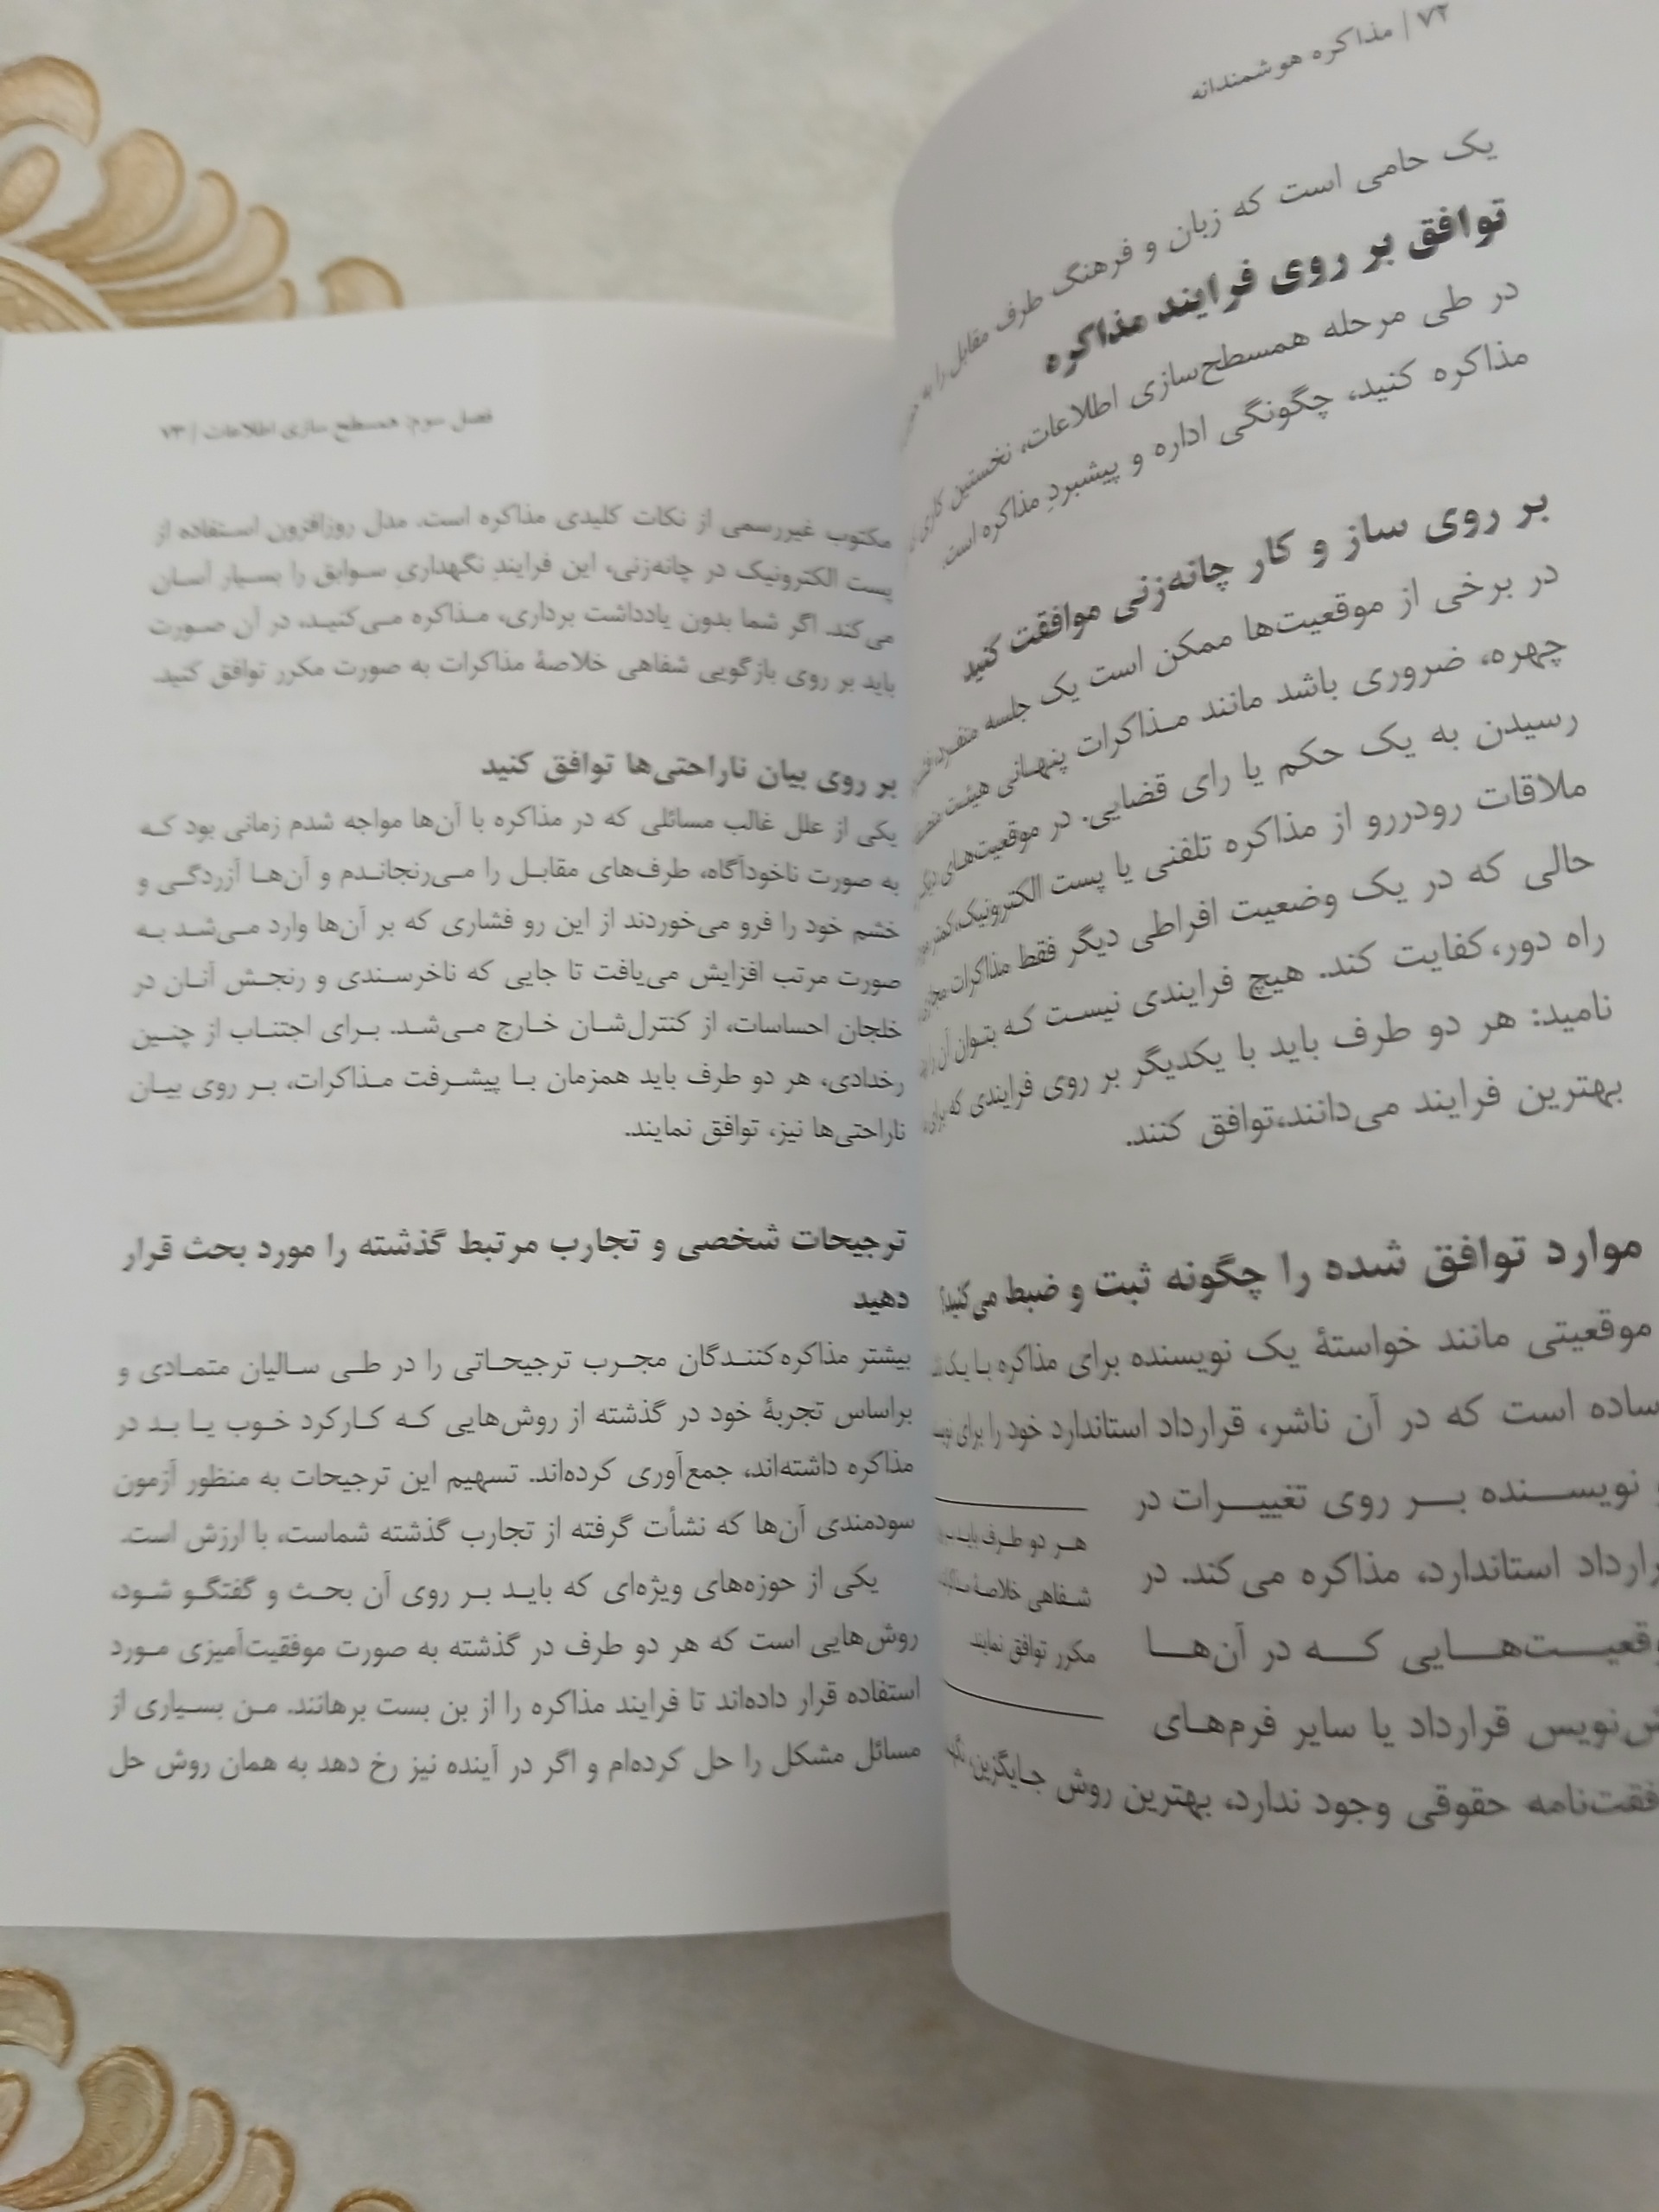 ۷۲ / مذاکره هوشمندانه
یک حامی است که زبان و فرهنگ طرف مقابل را به
توافق بر روی فرایند مذاکره
در طی مرحله همسطح‌سازی اطلاعات، نخستین کاری
مذاکره کنید، چگونگی اداره و پیشبردِ مذاکره است.
بر روی ساز و کار چانه‌زنی موافقت کنید
در برخی از موقعیت‌ها ممکن است یک جلسه منفرد،
چهره، ضروری باشد مانند مذاکرات پنهانی هیئت
رسیدن به یک حکم یا رای قضایی. در موقعیت‌های
ملاقات رودررو از مذاکره تلفنی یا پست الکترونیک،
حالی که در یک وضعیت افراطی دیگر فقط مذاکرات
راه دور،کفایت کند. هیچ فرایندی نیست که بتوان آن را
نامید: هر دو طرف باید با یکدیگر بر روی فرایندی که برای
بهترین فرایند می‌دانند،توافق کنند.
موارد توافق شده را چگونه ثبت و ضبط می‌کنید؟
موقعیتی مانند خواستهٔ یک نویسنده برای مذاکره با یک
ساده است که در آن ناشر، قرارداد استاندارد خود را برای
نویسنده بر روی تغییرات در
استاندارد، مذاکره می‌کند. در
که در آن‌ها
قرارداد یا سایر فرم‌های
حقوقی وجود ندارد، بهترین روش جایگزین،
هر دو طرف باید
شفاهی خلاصهٔ
مکرر توافق نمایند
فصل سوم: همسطح سازی اطلاعات / ۷۳
مکتوب غیررسمی از نکات کلیدی مذاکره است. مدل روزافزون استفاده از
پست الکترونیک در چانه‌زنی، این فرایندِ نگهداریِ سوابق را بسیار آسان
می‌کند. اگر شما بدون یادداشت برداری، مذاکره می‌کنید، در آن صورت
باید بر روی بازگویی شفاهی خلاصهٔ مذاکرات به صورت مکرر توافق کنید.
بر روی بیان ناراحتی‌ها توافق کنید
یکی از علل غالب مسائلی که در مذاکره با آن‌ها مواجه شدم زمانی بود که
به صورت ناخودآگاه، طرف‌های مقابل را می‌رنجاندم و آن‌ها آزردگی و
خشم خود را فرو می‌خوردند از این رو فشاری که بر آن‌ها وارد می‌شد به
صورت مرتب افزایش می‌یافت تا جایی که ناخرسندی و رنجش آنان در
خلجان احساسات، از کنترل‌شان خارج می‌شد. برای اجتناب از چنین
رخدادی، هر دو طرف باید همزمان با پیشرفت مذاکرات، بر روی بیان
ناراحتی‌ها نیز، توافق نمایند.
ترجیحات شخصی و تجارب مرتبط گذشته را مورد بحث قرار
دهید
بیشتر مذاکره‌کنندگان مجرب ترجیحاتی را در طی سالیان متمادی و
براساس تجربهٔ خود در گذشته از روش‌هایی که کارکرد خوب یا بد در
مذاکره داشته‌اند، جمع‌آوری کرده‌اند. تسهیم این ترجیحات به منظور آزمون
سودمندی آن‌ها که نشأت گرفته از تجارب گذشته شماست، با ارزش است.
یکی از حوزه‌های ویژه‌ای که باید بر روی آن بحث و گفتگو شود،
روش‌هایی است که هر دو طرف در گذشته به صورت موفقیت‌آمیزی مورد
استفاده قرار داده‌اند تا فرایند مذاکره را از بن بست برهانند. من بسیاری از
مسائل مشکل را حل کرده‌ام و اگر در آینده نیز رخ دهد به همان روش حل